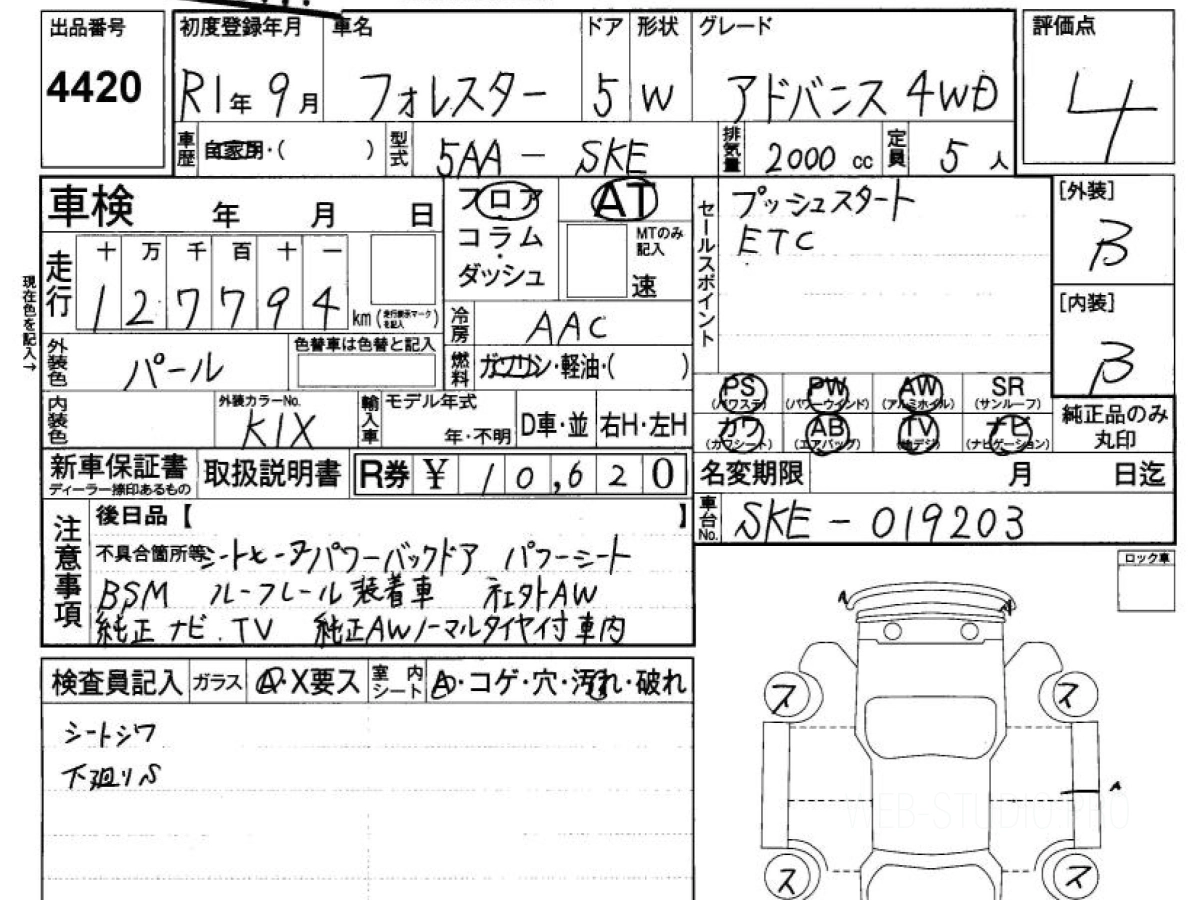 出品番号 初度登録年月 車名 ドア 形状 グレード 評価点
4420 R1年 9月 フォレスター 5 W アドバンス 4WD 4
車歴 自家用・( ) 型式 5AA - SKE 排気量 2000 cc 定員 5 人
車検 年 月 日
フロア
コラム
ダッシュ
AT
MTのみ記入
速
セールスポイント
プッシュスタート
ETC
[外装]
B
[内装]
B
現在色を記入→
走行 十 万 千 百 十 一
1 2 7 7 9 4 km (走行表示マークを記入)
冷房 AAC
外装色 パール 色替車は色替と記入
燃料 ガソリン・軽油・( )
内装色 外装カラーNo. K1X
輸入車 モデル年式 年・不明 D車・並 右H・左H
PS (パワステ) PW (パワーウインド) AW (アルミホイル) SR (サンルーフ)
カワ (カワシート) AB (エアバッグ) TV (地デジ) ナビ (ナビゲーション)
純正品のみ
丸印
新車保証書 ディーラー捺印あるもの 取扱説明書 R券 ¥ 10,620
名変期限 月 日迄
車台No. SKE - 019203
注意事項
後日品【 】
不具合箇所等 シートヒータ パワーバックドア パワーシート
BSM ルーフレール装着車 社外AW
純正ナビ.TV 純正AWノーマルタイヤ付車内
ロック車
検査員記入 ガラス A・X要ス 室内シート A・コゲ・穴・汚れ・破れ
シートシワ
下廻りS
A A
ス ス
A
ス ス
WEB-STUDIO.PRO